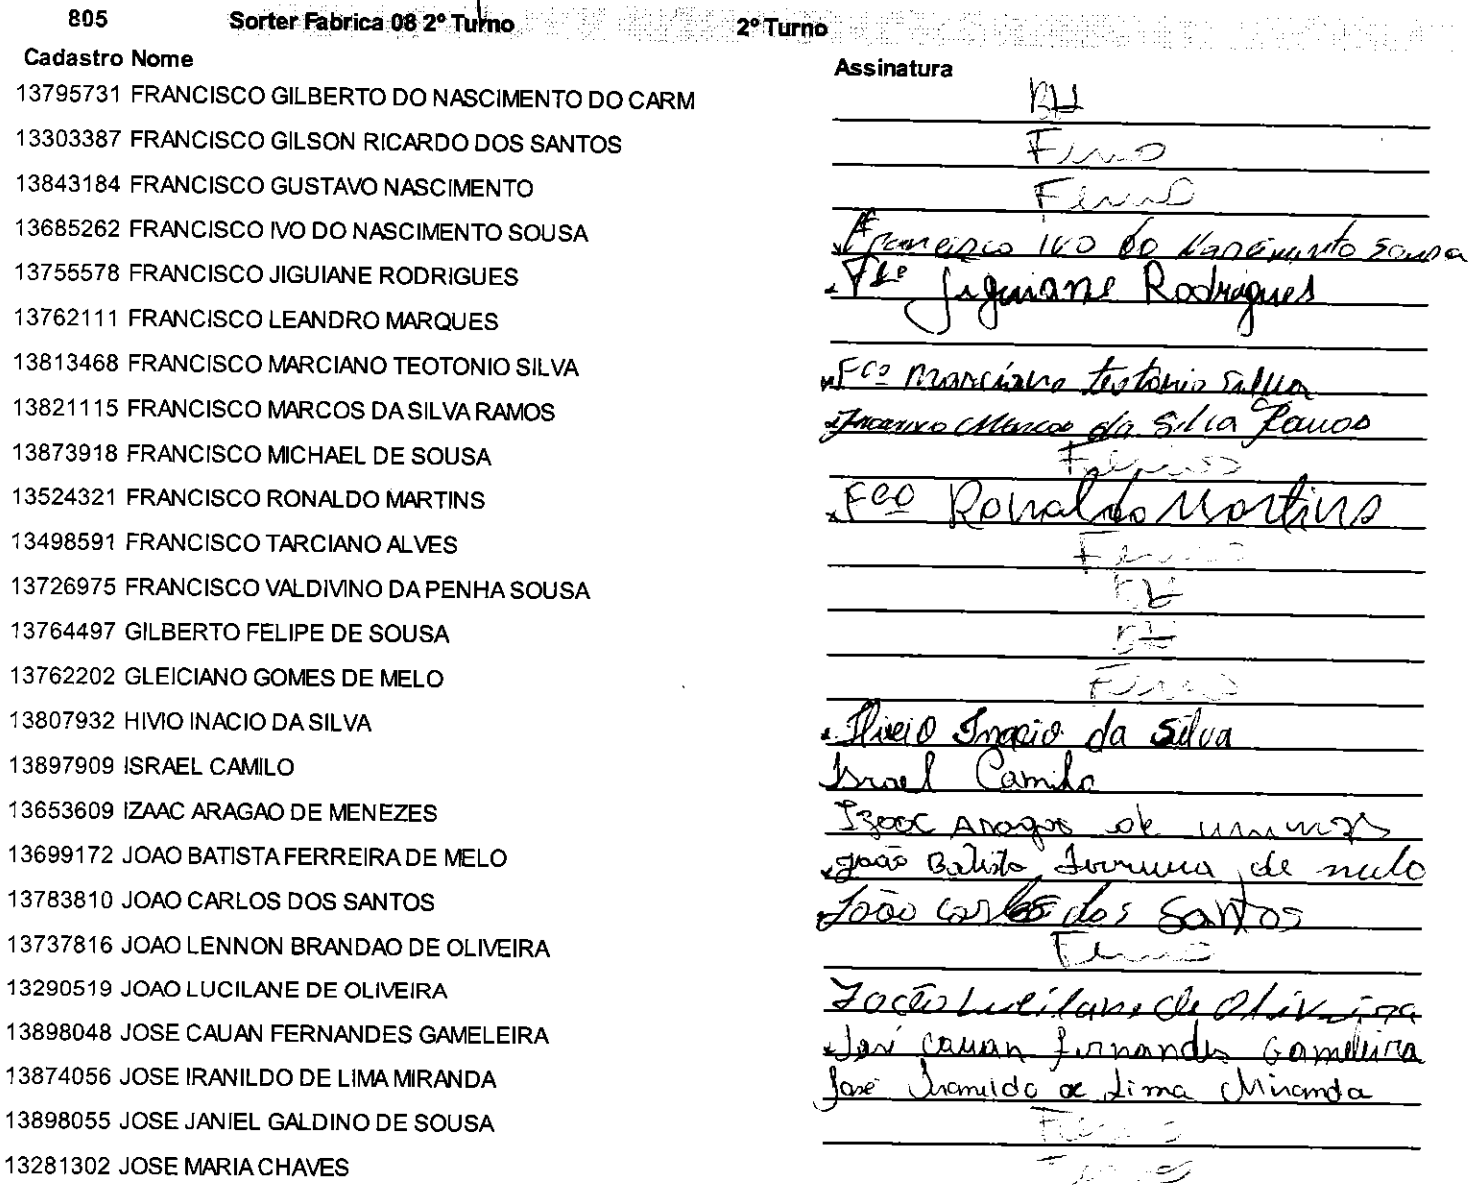 805 Sorter Fabrica 08 2º Turno 2º Turno
Cadastro Nome Assinatura
13795731 FRANCISCO GILBERTO DO NASCIMENTO DO CARM BH
13303387 FRANCISCO GILSON RICARDO DOS SANTOS
13843184 FRANCISCO GUSTAVO NASCIMENTO
13685262 FRANCISCO IVO DO NASCIMENTO SOUSA Francisco Ivo do Nascimento Sousa
13755578 FRANCISCO JIGUIANE RODRIGUES Fcº Jiguiane Rodrigues
13762111 FRANCISCO LEANDRO MARQUES
13813468 FRANCISCO MARCIANO TEOTONIO SILVA Fcº Marciano teotonio Silva
13821115 FRANCISCO MARCOS DA SILVA RAMOS Francisco Marcos da Silva Ramos
13873918 FRANCISCO MICHAEL DE SOUSA
13524321 FRANCISCO RONALDO MARTINS Fco Ronaldo Martins
13498591 FRANCISCO TARCIANO ALVES
13726975 FRANCISCO VALDIVINO DA PENHA SOUSA BH
13764497 GILBERTO FELIPE DE SOUSA BH
13762202 GLEICIANO GOMES DE MELO
13807932 HIVIO INACIO DA SILVA Hivio Inacio da Silva
13897909 ISRAEL CAMILO Israel Camilo
13653609 IZAAC ARAGAO DE MENEZES Izaac Aragao de menezes
13699172 JOAO BATISTA FERREIRA DE MELO joão Batista Ferreira de melo
13783810 JOAO CARLOS DOS SANTOS João Carlos dos Santos
13737816 JOAO LENNON BRANDAO DE OLIVEIRA
13290519 JOAO LUCILANE DE OLIVEIRA João Lucilane de Oliveira
13898048 JOSE CAUAN FERNANDES GAMELEIRA José Cauan fernandes Gameleira
13874056 JOSE IRANILDO DE LIMA MIRANDA José Iranildo de Lima Miranda
13898055 JOSE JANIEL GALDINO DE SOUSA
13281302 JOSE MARIA CHAVES